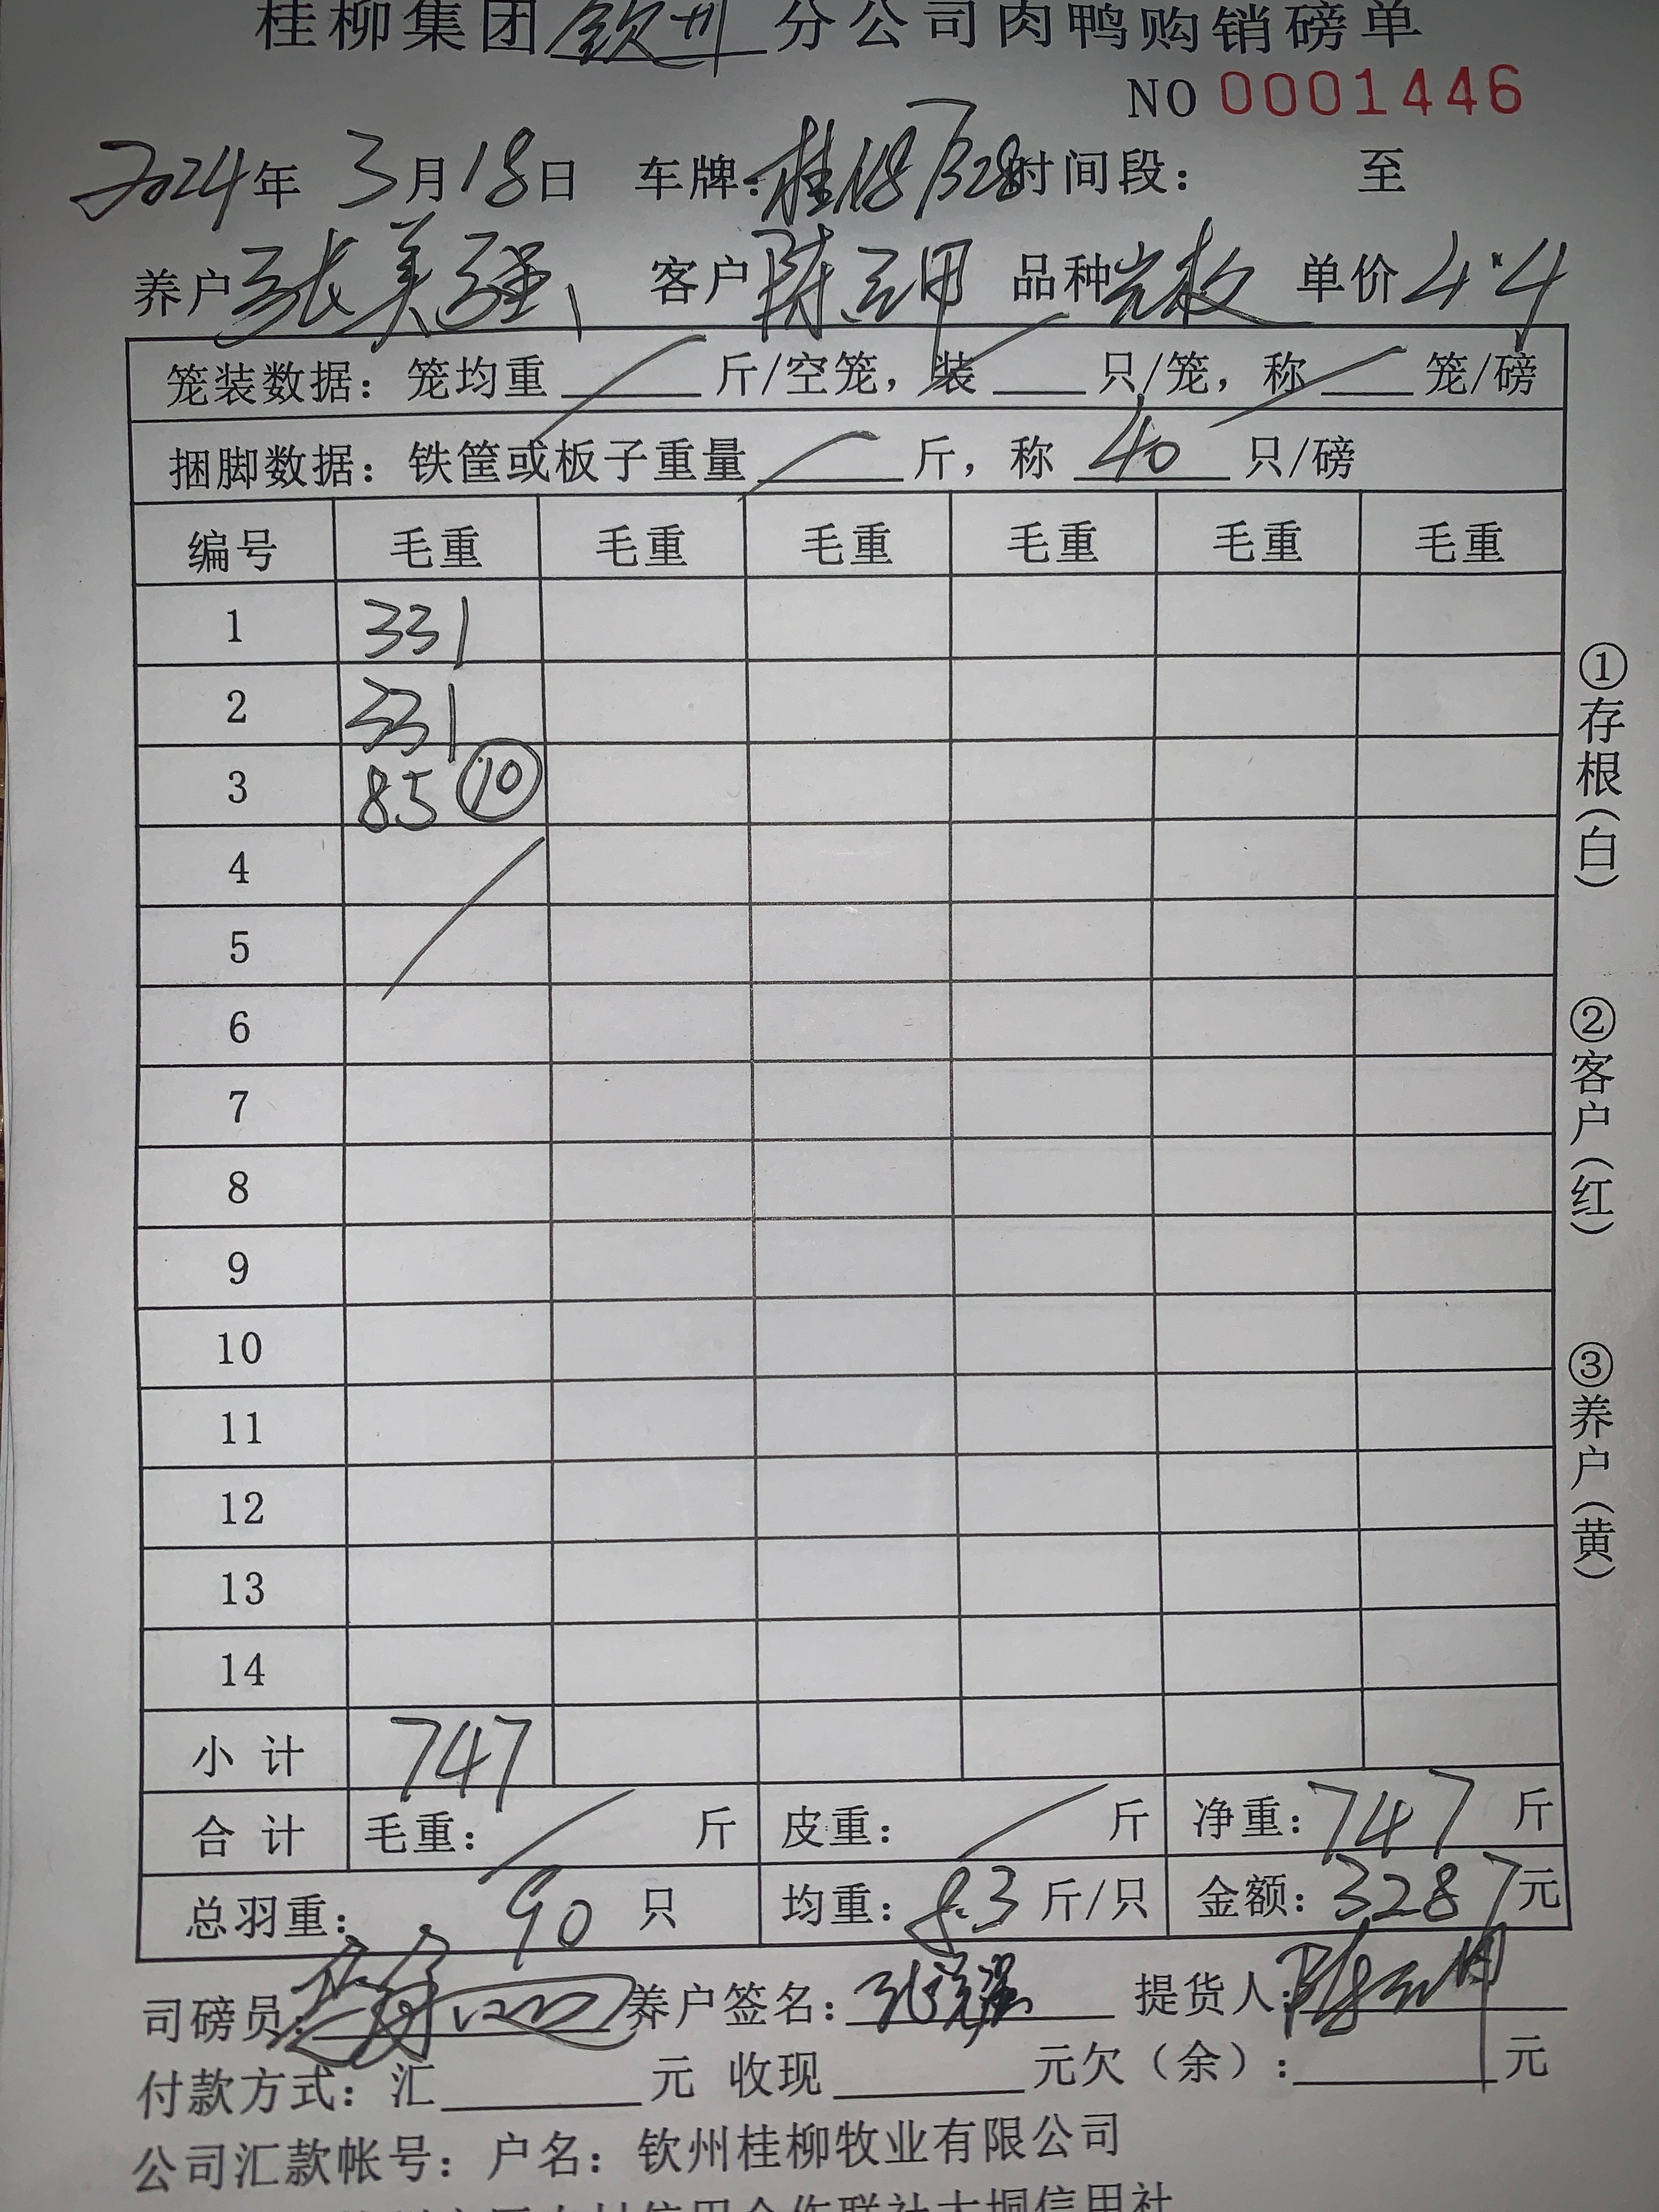 桂柳集团钦州分公司肉鸭购销磅单
NO 0001446
2024年 3月18日 车牌: 时间段: 至
养户张美强 客户陈 品种 单价4.4
笼装数据: 笼均重 斤/空笼, 装 只/笼, 称 笼/磅
捆脚数据: 铁筐或板子重量 斤, 称 40 只/磅
编号 毛重 毛重 毛重 毛重 毛重 毛重
1 331
2 331
3 85 ⑩
4
5
6
7
8
9
10
11
12
13
14
小 计 747
合 计 毛重: 斤 皮重: 斤 净重: 747 斤
总羽重: 90 只 均重: 8.3 斤/只 金额: 3287元
司磅员: 养户签名: 张美强 提货人: 陈
付款方式: 汇 元 收现 元欠(余): 元
公司汇款帐号: 户名: 钦州桂柳牧业有限公司
①存根(白)
②客户(红)
③养户(黄)